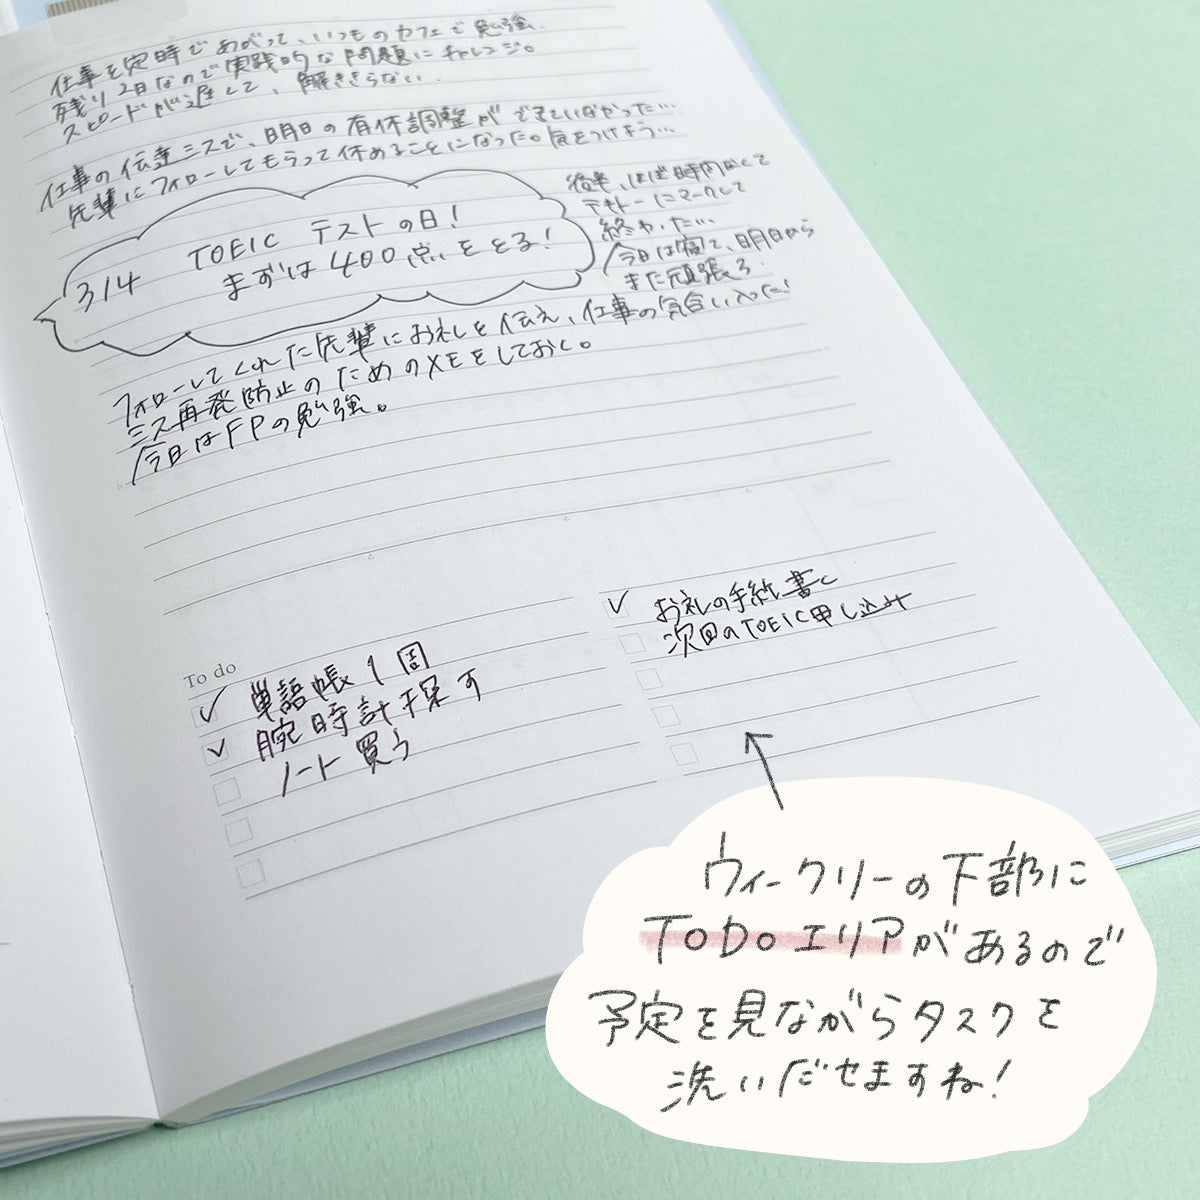 仕事を定時であがって、いつものカフェで勉強。
残り2日なので実践的な問題にチャレンジ。
スピードが遅くて、解ききらない…
仕事の伝達ミスで、明日の有休調整ができていなかった…
先輩にフォローしてもらって休めることになった。気をつけよう…
3/4 TOEIC テストの日!
まずは400点をとる!
後半、ほぼ時間なくて
テキトーにマークして
終わった…
今日は寝て、明日から
また頑張る。
フォローしてくれた先輩にお礼を伝え、仕事の気合い入った!
ミス再発防止のためのメモをしておく。
今日はFPの勉強。
To do
✓ 単語帳1周
✓ 腕時計探す
ノート買う
✓ お礼の手紙書く
次回のTOEIC申し込み
ウィークリーの下部に
ToDoエリアがあるので
予定を見ながらタスクを
洗いだせますね!